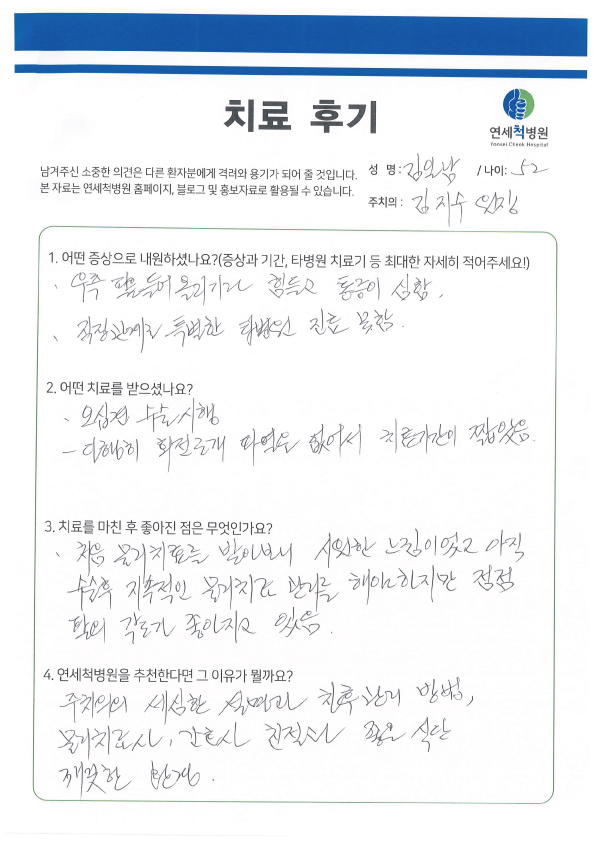 치료 후기
연세척병원
Yonsei Cheok Hospital
남겨주신 소중한 의견은 다른 환자분에게 격려와 용기가 되어 줄 것입니다.
본 자료는 연세척병원 홈페이지, 블로그 및 홍보자료로 활용될 수 있습니다.
성 명: 김인남 / 나이: 52
주치의 : 김지수 원장
1. 어떤 증상으로 내원하셨나요?(증상과 기간, 타병원 치료기 등 최대한 자세히 적어주세요!)
우측 팔을 들어 올리기가 힘들고 통증이 심함.
직장관계로 특별한 타병원 진료 못함.
2. 어떤 치료를 받으셨나요?
오십견 수술 시행
- 다행히 회전근개 파열은 없어서 치료기간이 짧았음.
3. 치료를 마친 후 좋아진 점은 무엇인가요?
처음 물리치료를 받아보니 시원한 느낌이었고 아직
수술후 지속적인 물리치료 관리를 해야 하지만 점점
팔의 각도가 좋아지고 있음.
4. 연세척병원을 추천한다면 그 이유가 뭘까요?
주치의의 세심한 설명과 치후관리 방법,
물리치료사, 간호사 친절하고 좋은 식단
깨끗한 환경.